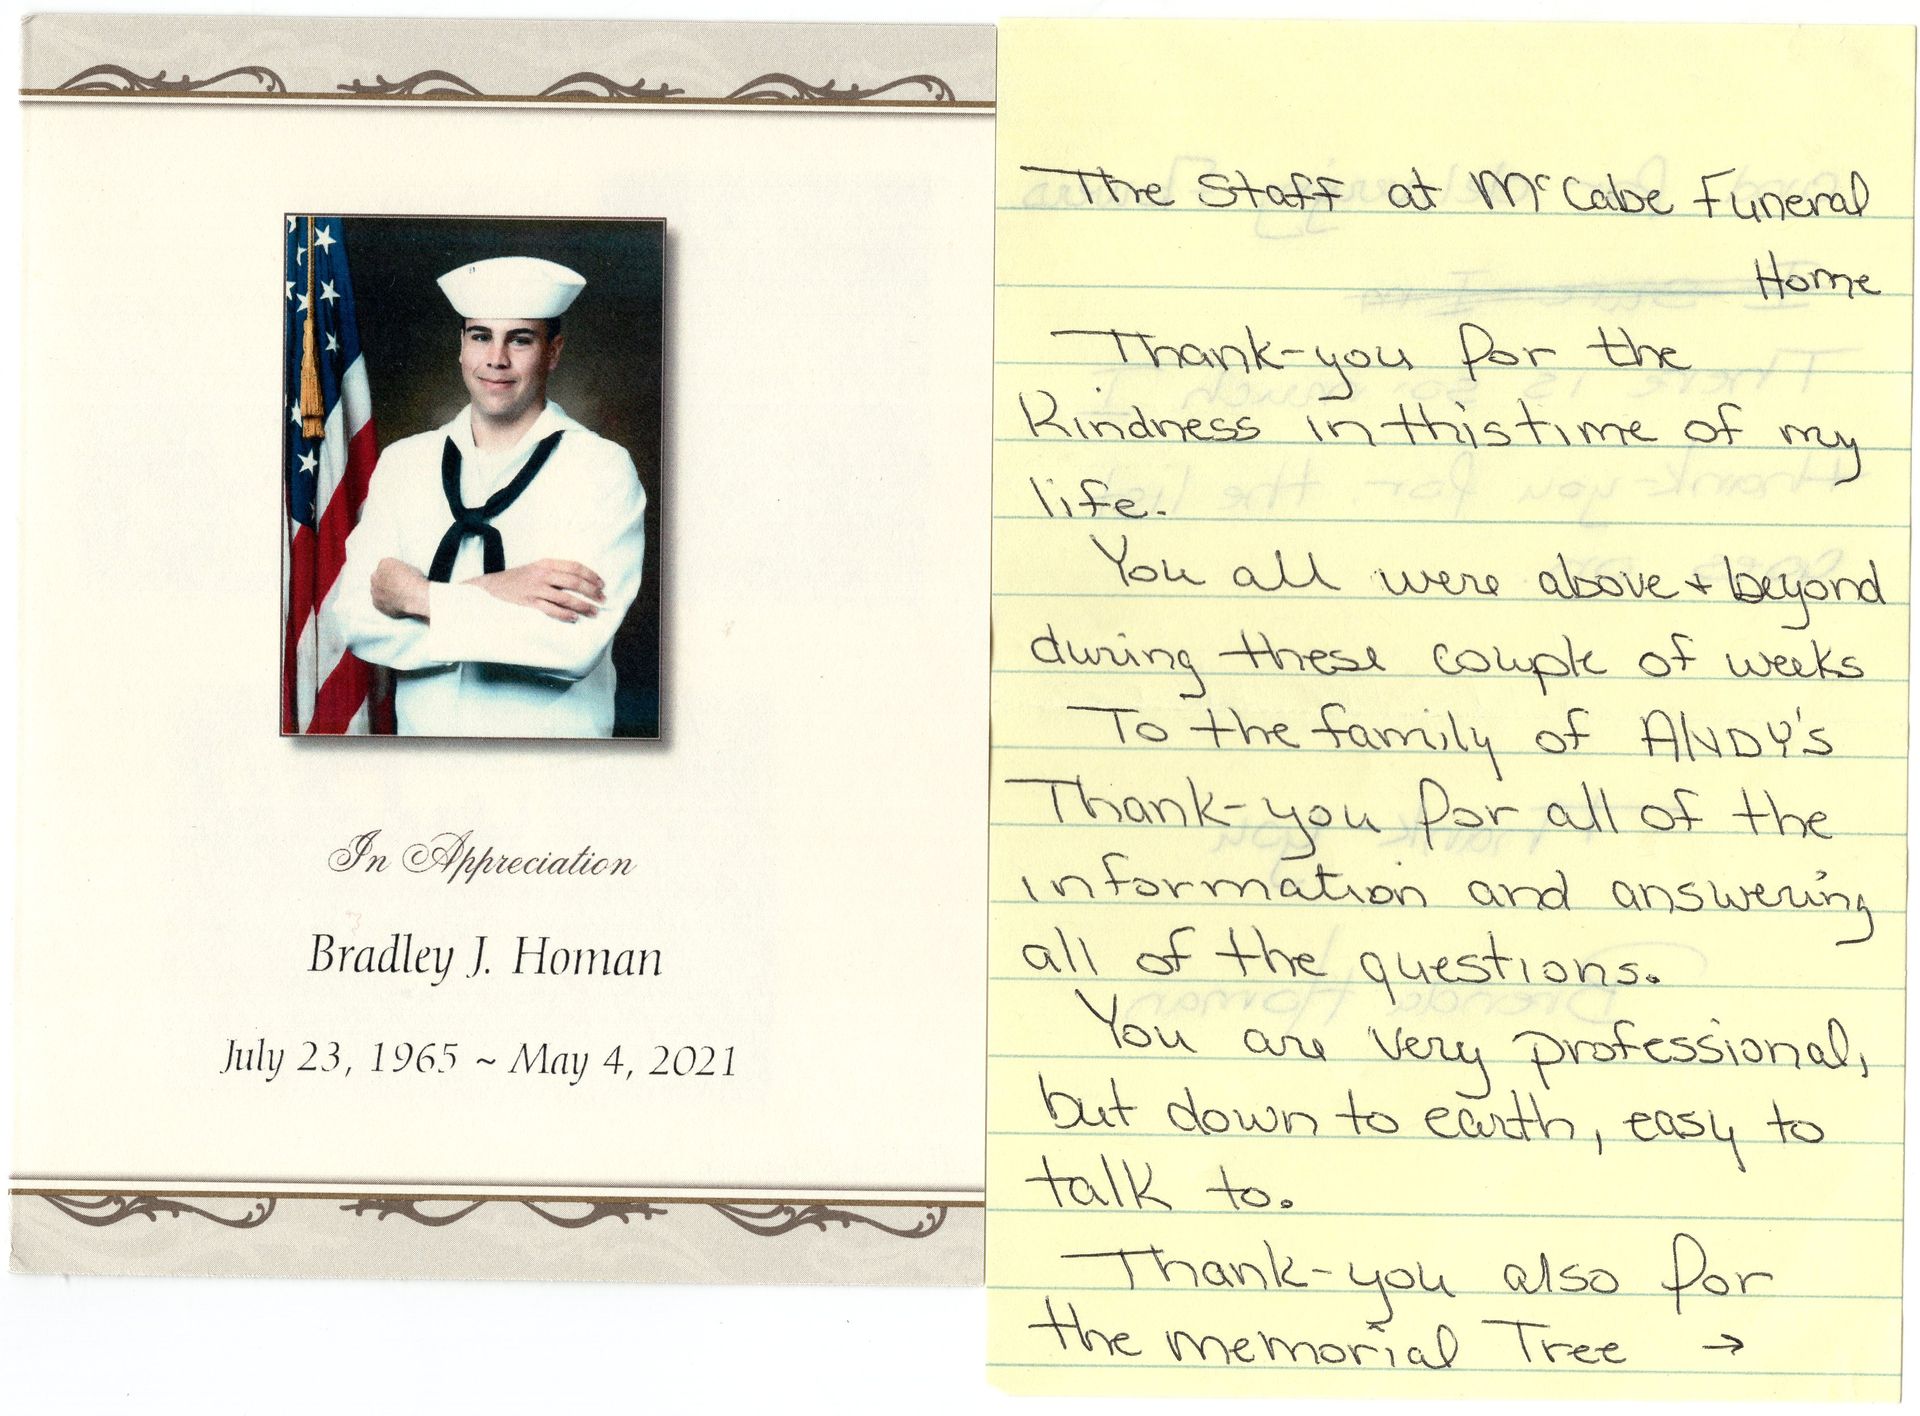 In Appreciation
Bradley J. Homan
July 23, 1965 ~ May 4, 2021
The Staff at McCabe Funeral
Home
Thank-you for the
Kindness in this time of my
life.
You all were above + beyond
during these couple of weeks
To the family of ANDY's
Thank-you for all of the
information and answering
all of the questions.
You are very professional,
but down to earth, easy to
talk to.
Thank-you also for
the memorial Tree →